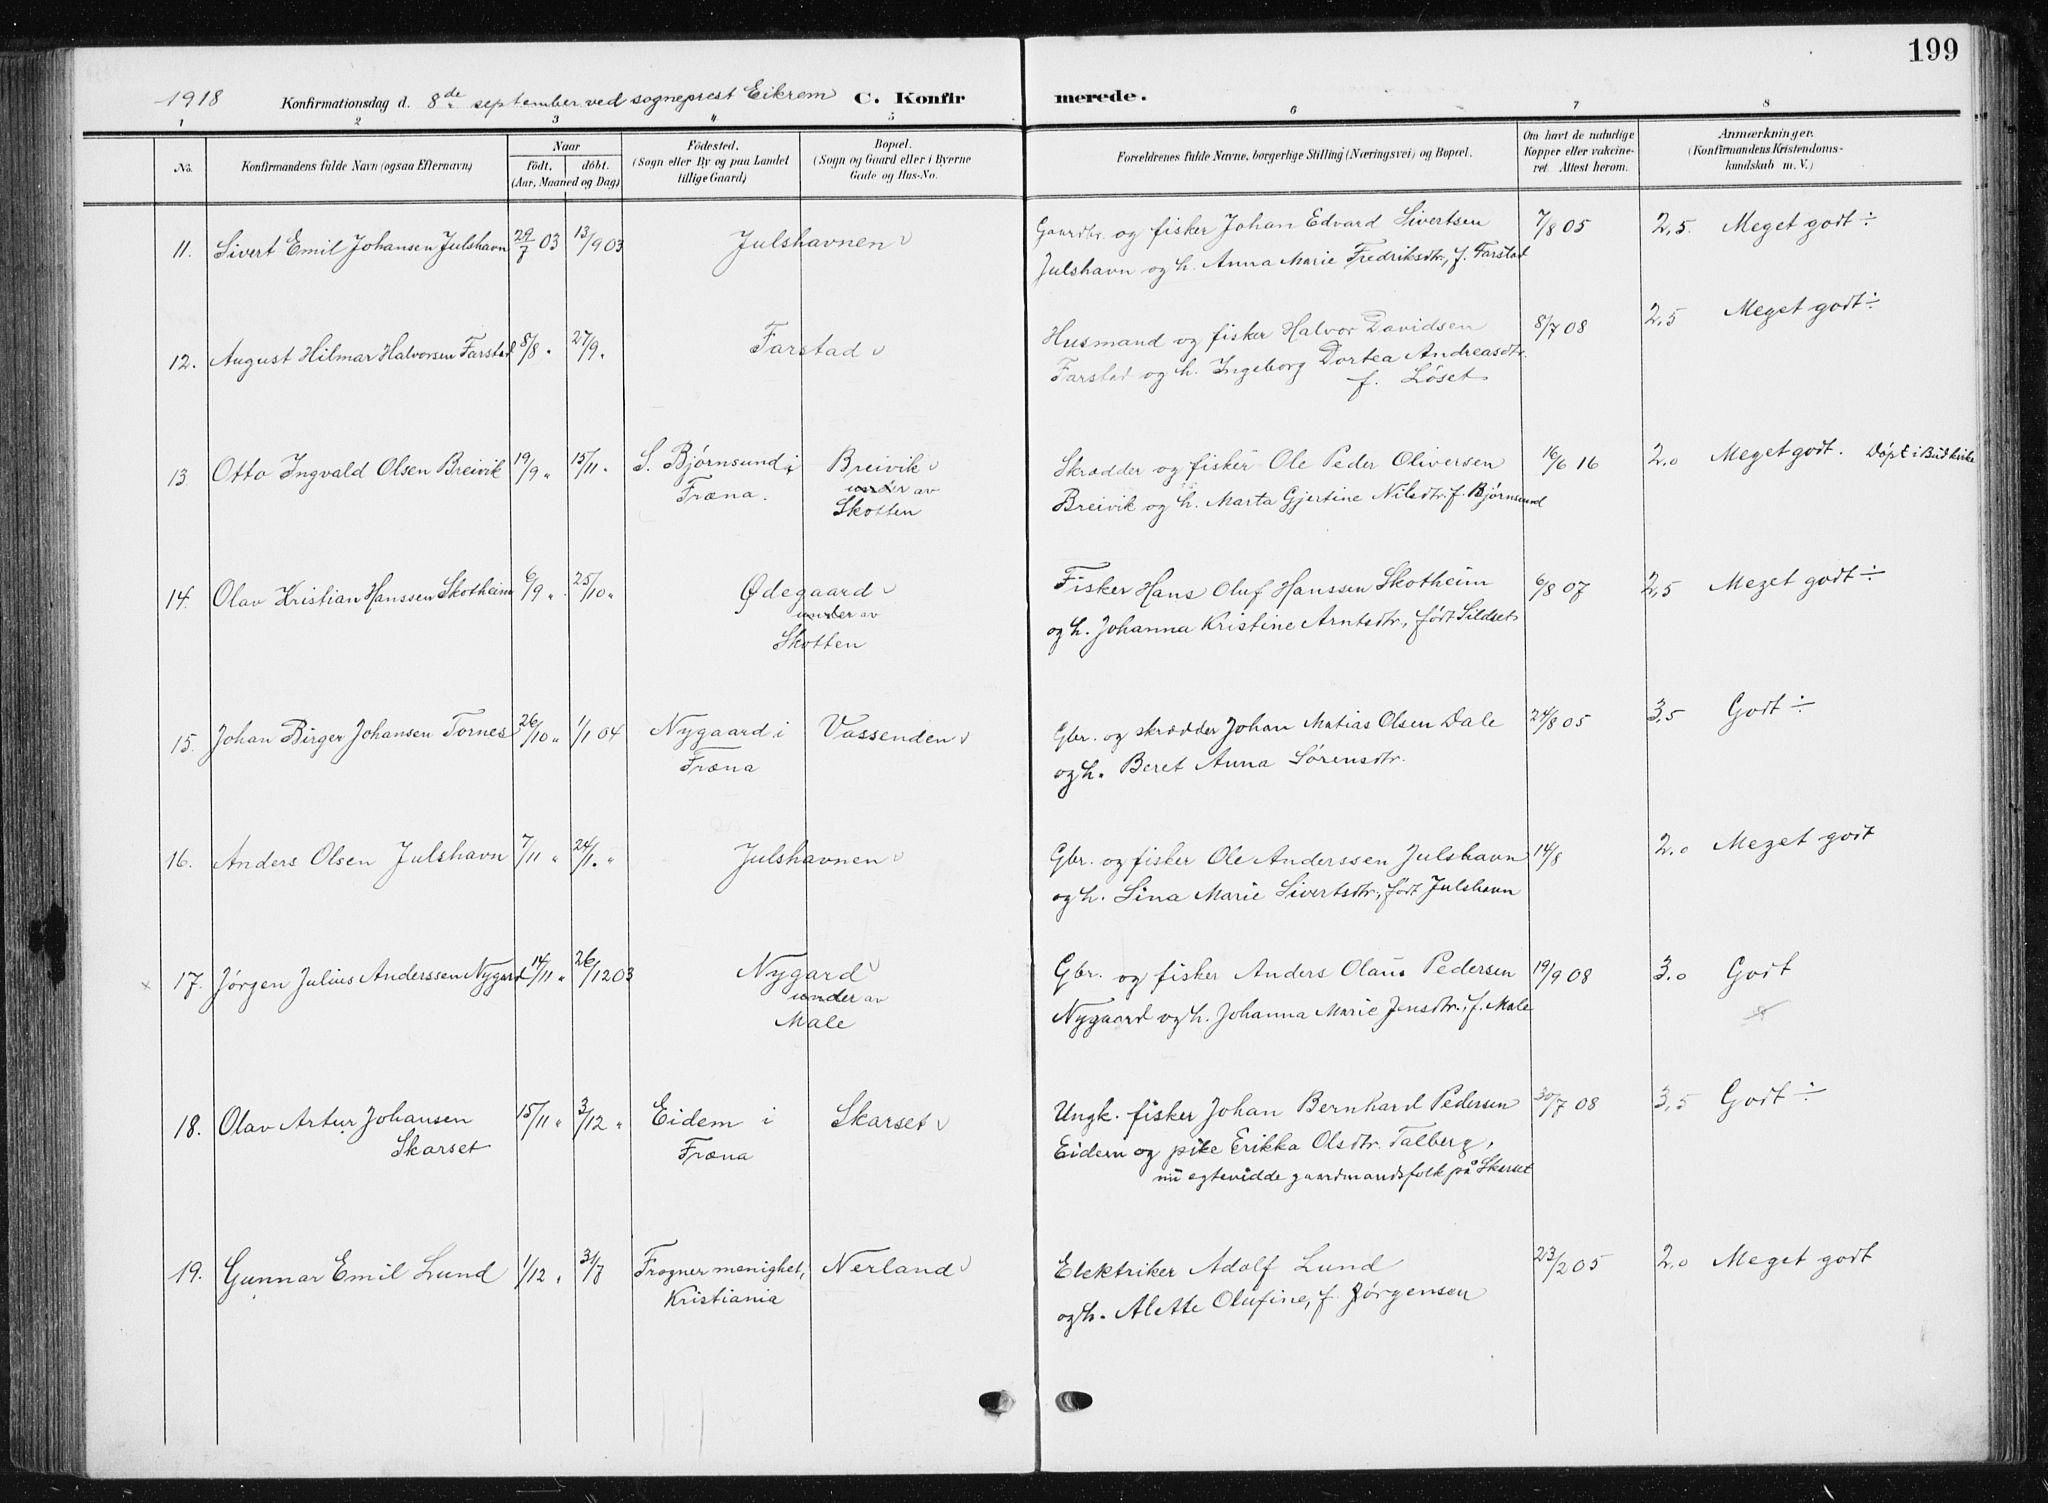 199
1918 Konfirmationsdag d. 8de september ved sogneprest Eikrem C. Konfirmerede.
1 2 3 4 5 6 7 8
No. Konfirmandens fulde Navn (ogsaa Efternavn) Naar født. døbt. (Aar, Maaned og Dag) Fødested. (Sogn eller By og paa Landet tillige Gaard) Bopæl. (Sogn og Gaard eller i Byerne Gade og Hus-No. Forældrenes fulde Navne, borgerlige Stilling (Næringsvei) og Bopæl. Om havt de naturlige Kopper eller vakcineret. Attest herom. Anmærkninger. (Konfirmandens Kristendomskundskab m. V.)
11. Sivert Emil Johansen Julshavn 29/7 03 13/9 03 Julshavnen Gaardbr. og fisker Johan Edvard Sivertsen 7/8 05 2,5 Meget godt ÷
Julshavn og h. Anna Marie Fredriksdtr., f. Farstad
12. August Hilmar Halvorsen Farstad 8/8 " 27/9 " Farstad Husmand og fisker Halvor Davidsen 8/7 08 2,5 Meget godt ÷
Farstad og h. Ingeborg Dortea Andreasdtr.
f. Løset
13 Otto Ingvald Olsen Breivik 19/9 " 15/11 " S. Bjørnsund i Breivik Skrædder og fisker Ole Peder Oliversen 16/6 16 2.0 Meget godt. Døpt i Bud kirke
Fræna. under av Breivik og h. Marta Gjertine Nilsdtr. f. Bjørnsund
Skotten
14. Olav Kristian Hanssen Skotheim 6/9 " 25/10 " Ødegaard Fisker Hans Oluf Hanssen Skotheim 6/8 07 2,5 Meget godt ÷
under av og h. Johanna Kristine Arntsdtr., født Sildset
Skotten
15. Johan Birger Johansen Tornes 26/10 " 1/1 04 Nygaard i Vassenden Gbr. og skrædder Johan Matias Olsen Dale 24/8 05 3,5 Godt ÷
Fræna og h. Beret Anna Sørensdtr.
16. Anders Olsen Julshavn 7/11 " 24/1 " Julshavnen Gbr. og fisker Ole Anderssen Julshavn 14/8 2.0 Meget godt
og h. Sina Marie Sivertsdtr., født Julshavn
17. Jørgen Julius Anderssen Nygard 14/11 " 26/12 03 Nygard Gbr. og fisker Anders Olaus Pedersen 19/9 08 3.0 Godt
under av Nygaard og h. Johanna Marie Jensdtr., f. Male
Male
18. Olav Artur Johansen 15/11 " 3/12 " Eidem i Skarset Ungk. fisker Johan Bernhard Pedersen 30/7 08 3,5 Godt ÷
Skarset Fræna Eidem og pike Erikka Olsdtr. Talberg,
nu egteviede gaardmandsfolk på Skarset
19. Gunnar Emil Lund 1/12 " 31/8 Frogner menighet, Nerland Elektriker Adolf Lund 23/2 05 2.0 Meget godt
Kristiania og h. Alette Olufine, f. Jørgensen